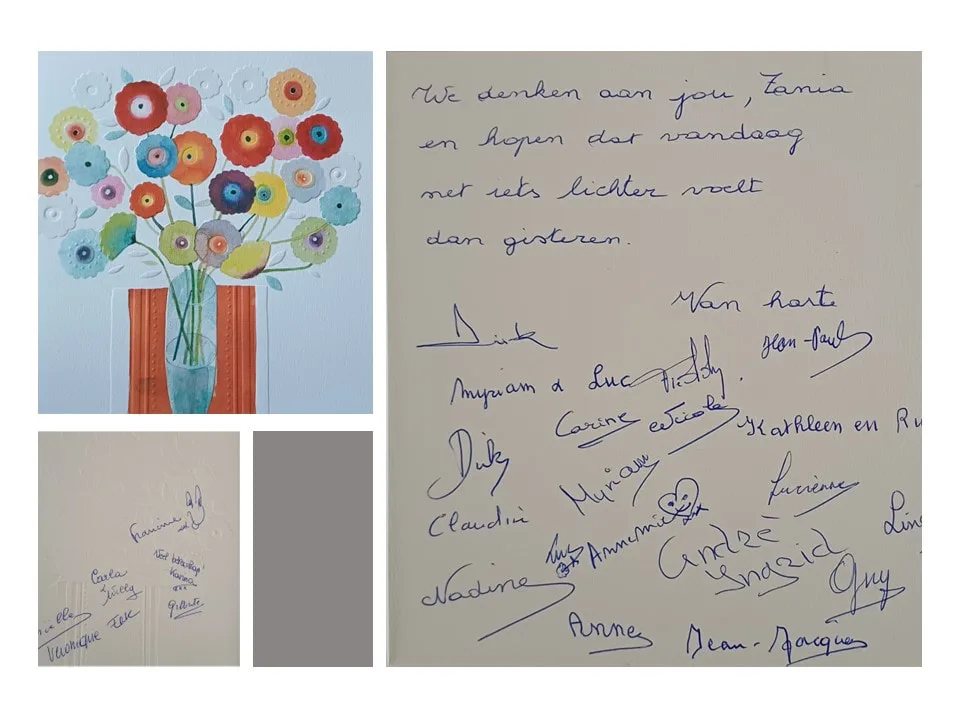 We denken aan jou, Tania
en hopen dat vandaag
net iets lichter voelt
dan gisteren.
Van harte
Dirk
Jean-Paul
Myriam & Luc
Carine
Nicole
Kathleen en Ru
Dirk
Myriam
Lucienne
Claudine
Annemie
André
Ingrid
Line
Nadine
Guy
Anne
Jean-Jacques
Francine
Veel beterschap!
Karina
xxx
Carla
&
Willy
Gilberte
Veronique